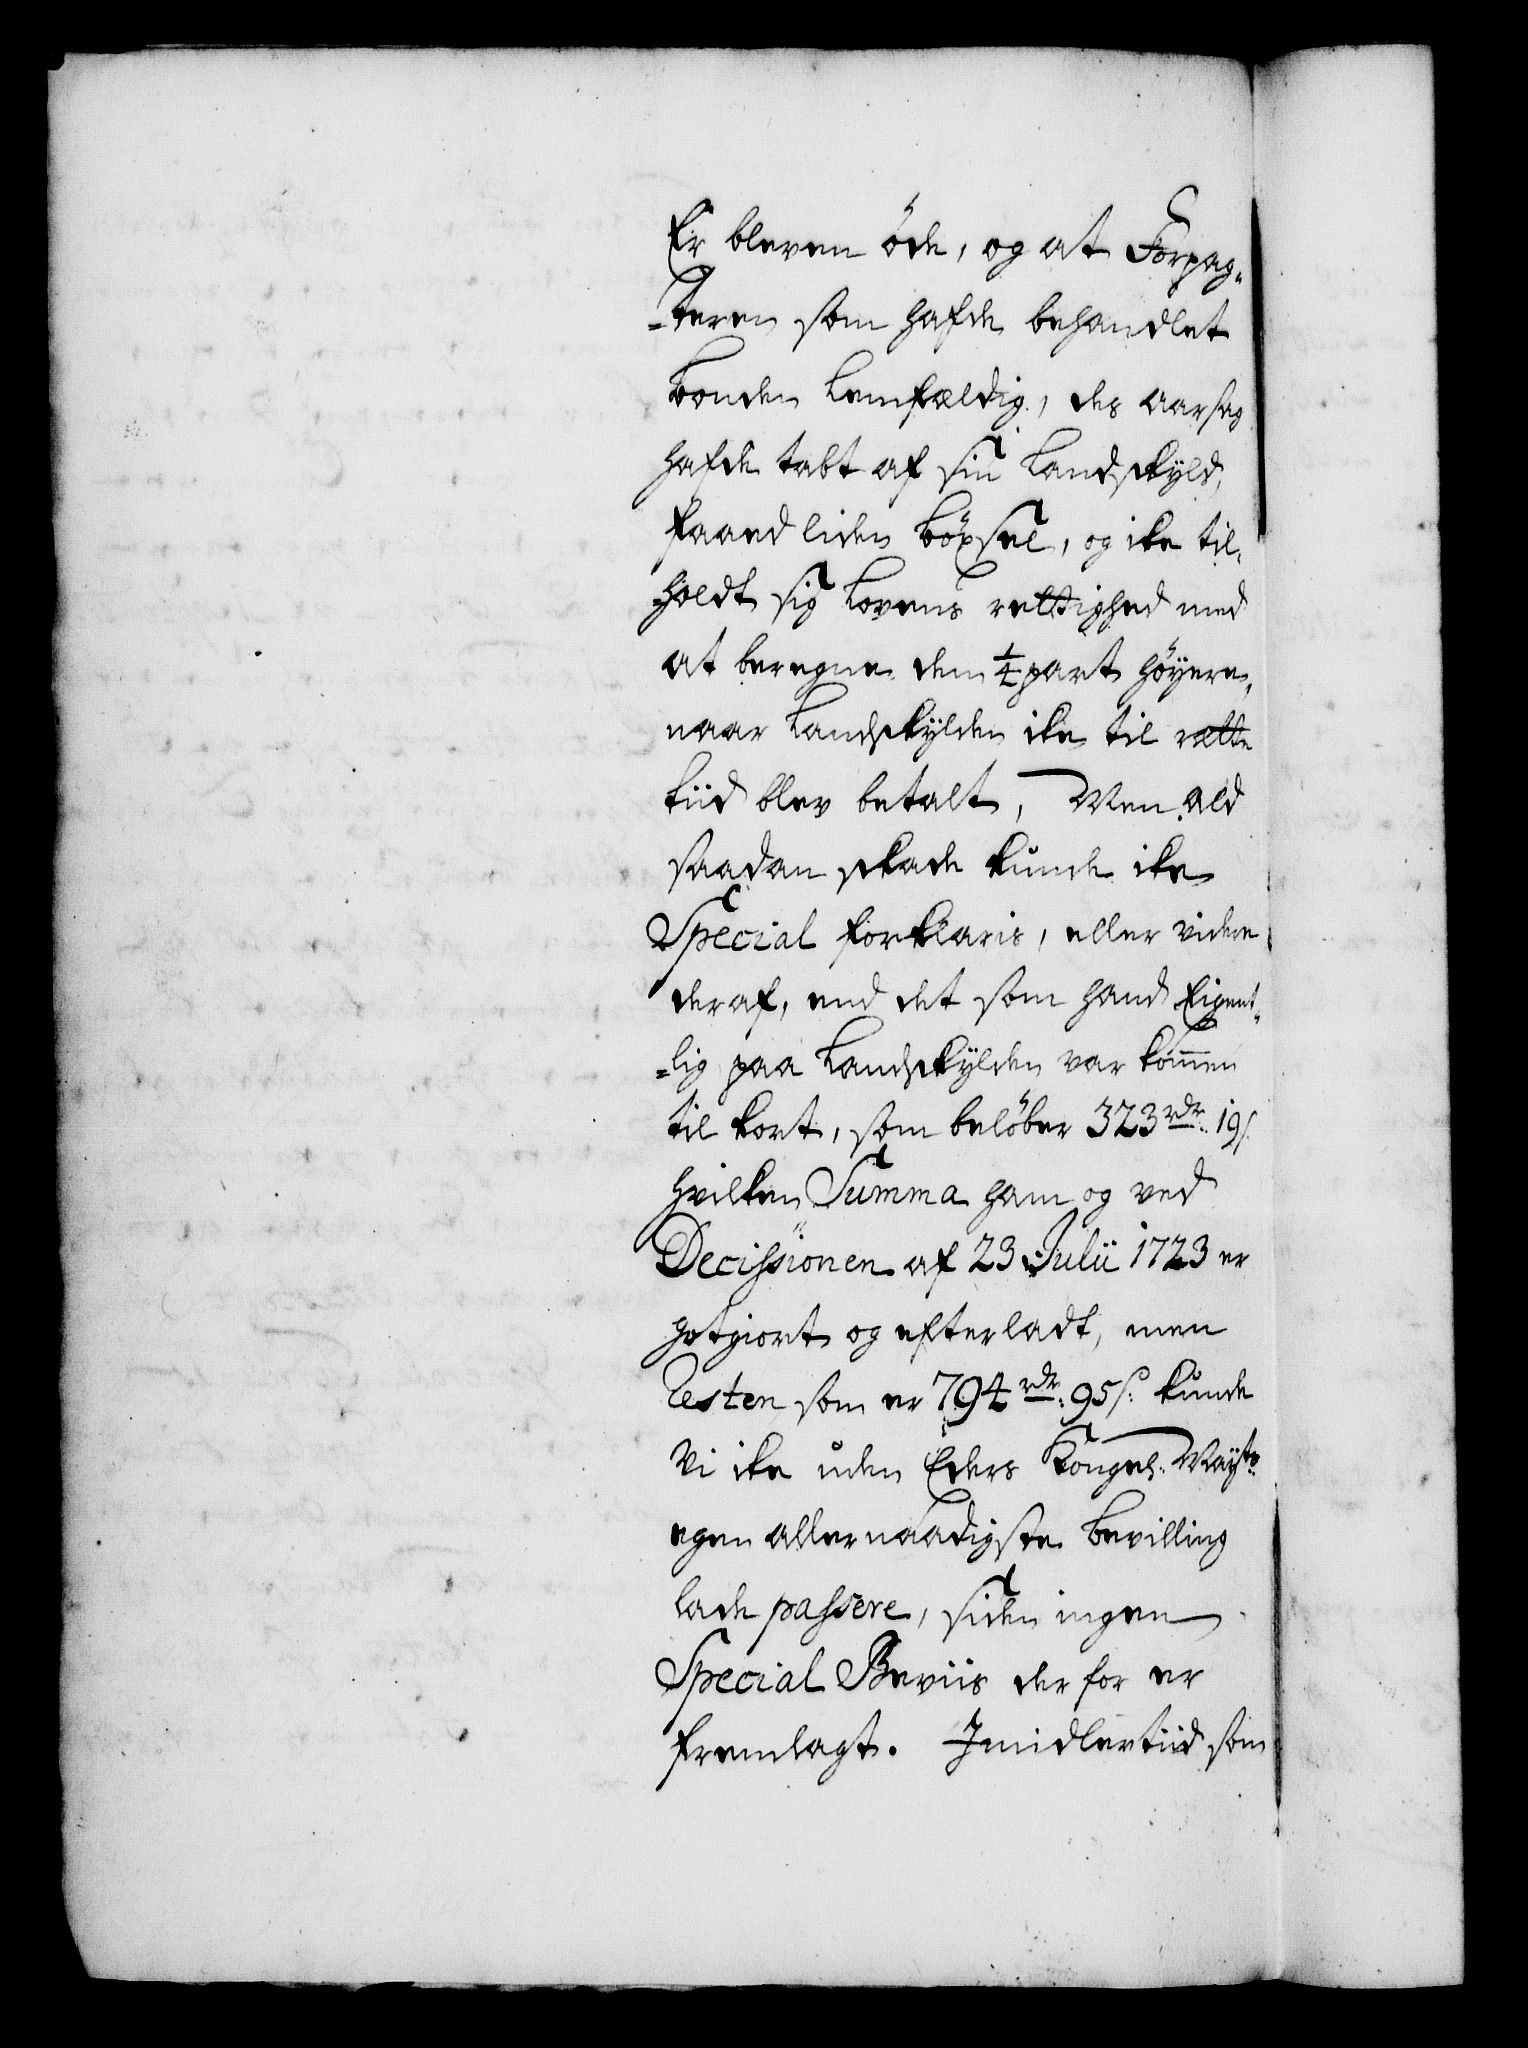 Er bleven öde, og at Forpag-
-teren som hafde behandlet
bonden lemfældig, des aarsag
hafde tabt af sin Landskyld,
faaed liden böxsel, og ike til-
holdt sig Lovens rettighed med
at beregne dem 1/4 part höyere,
naar Landskylden ike til rætte
tiid blev betalt, Men ald
saadan skade kunde ike
Special forklaris, eller videre
deraf, end det som hand Eigent-
-lig paa Landskylden var kommen
til kort, som belöber 323 rdr. 19 s.
hvilken Summa ham og ved
Decissionen af 23 Julii 1723 er
gotgiort og efterladt, men
Resten som er 794 rdr: 95 s: kunde
Vi ike uden Eders Kongel: Mayts
egen allernaadigste bevilling
lade passere, siden ingen
Special Beviis der for er
fremlagt. Jmidlertiid som